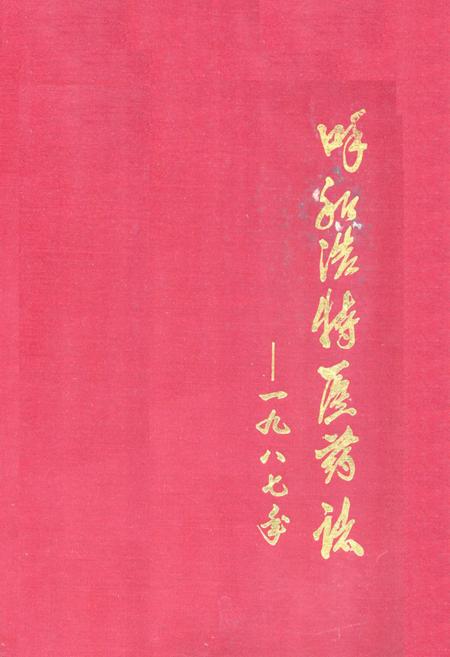 呼和浩特医药志
—一九八七年